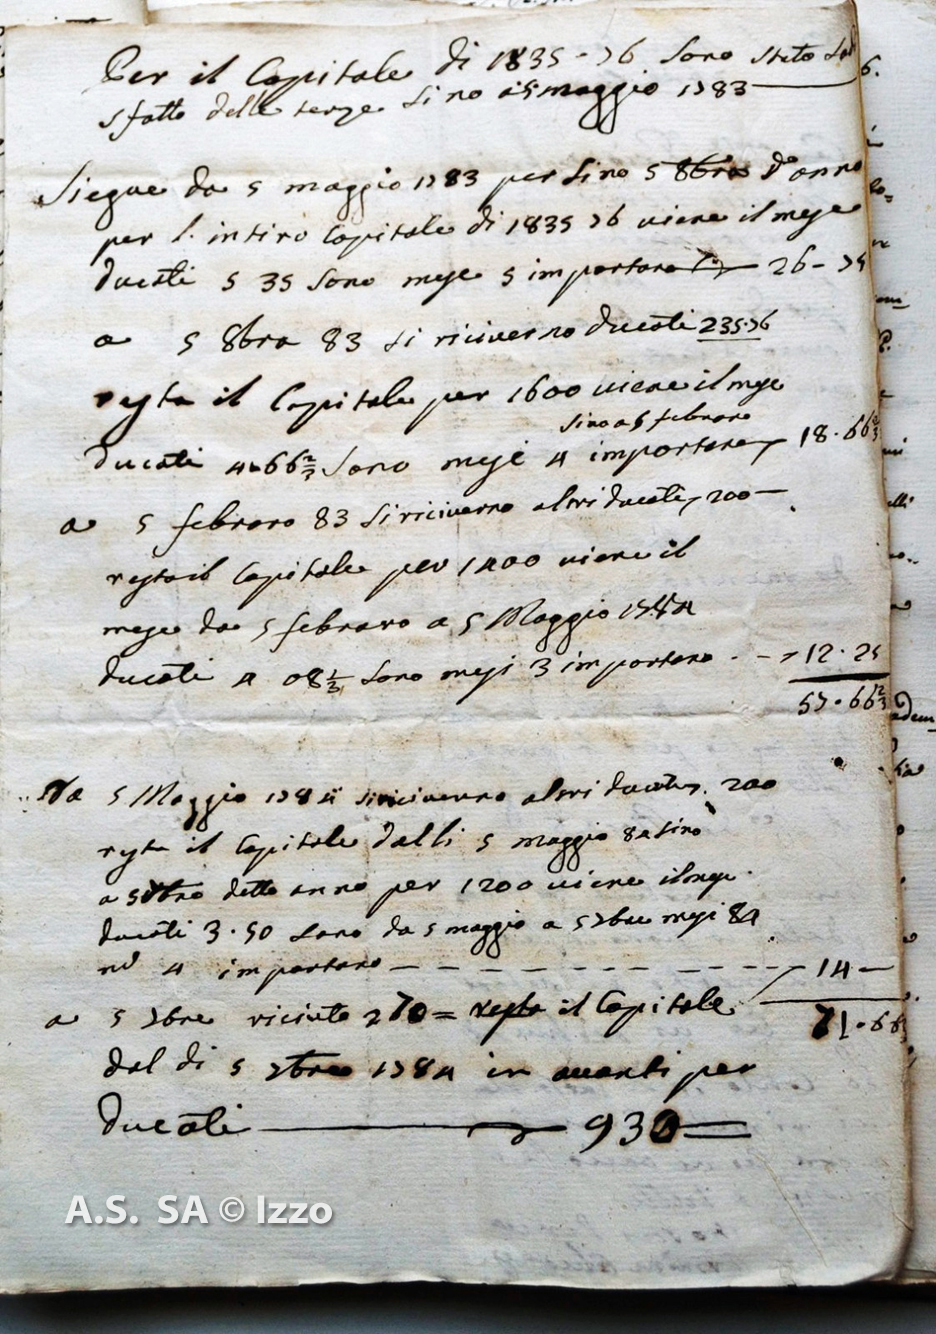 Per il Capitale di 1835-76 sono stato
sfatto delle terze sino a 5 maggio 1783
Siegue da 5 maggio 1783 per sino 5 8bro d° anno
per l. intiro Capitale di 1835 76 viene il mese
ducati 5 35 sono mese 5 importano 26-75
a 5 8bro 83 si riciverno ducati 235-76
resta il Capitale per 1600 viene il mese
sino a 5 febraro
ducati 4-66 2/3 sono mese 4 importano 18-66 2/3
a 5 febraro 83 si riciverno altri ducati 200
resta il Capitale per 1400 viene il
mese da 5 febraro a 5 Maggio 1784
ducati 4 08 1/3 sono mesi 3 importano 12-25
57-66 2/3
a 5 Maggio 1784 si riciverno altri ducati 200
resta il Capitale dalli 5 maggio 84 sino
a 57bro detto anno per 1200 viene il mese
ducati 3-50 sono da 5 maggio a 5 7bre mesi 84
n° 4 importano 14
a 5 7bre riciuto 270 = resta il Capitale
71-66
dal di 5 7bre 1784 in avanti per
ducati 930=
A.S. SA © Izzo